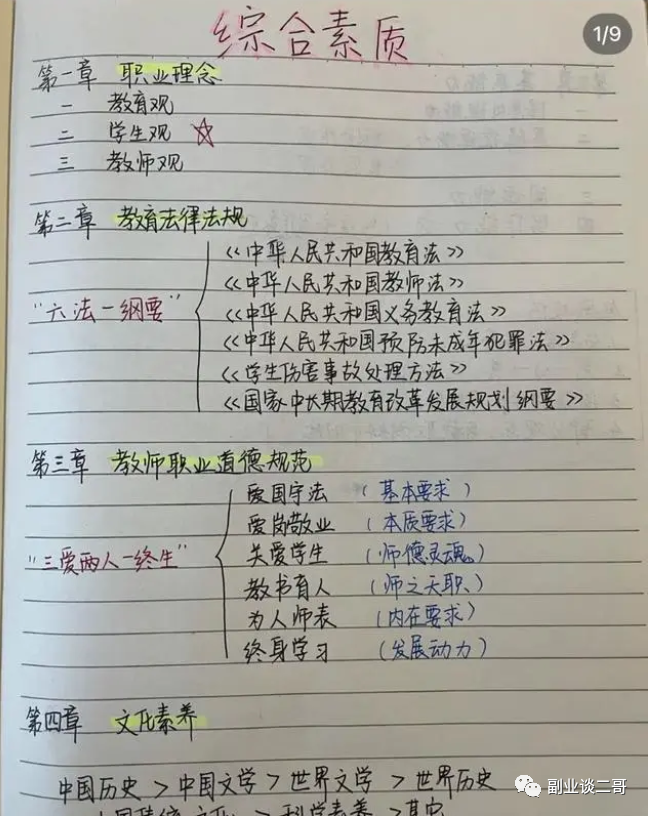 综合素质
1/9
第一章 职业理念
一 教育观
二 学生观 ☆
三 教师观
第二章 教育法律法规
"六法一纲要"
《中华人民共和国教育法》
《中华人民共和国教师法》
《中华人民共和国义务教育法》
《中华人民共和国预防未成年犯罪法》
《学生伤害事故处理方法》
《国家中长期教育改革发展规划纲要》
第三章 教师职业道德规范
"三爱两人一终生"
爱国守法 (基本要求)
爱岗敬业 (本质要求)
关爱学生 (师德灵魂)
教书育人 (师之天职)
为人师表 (内在要求)
终身学习 (发展动力)
第四章 文化素养
中国历史 > 中国文学 > 世界文学 > 世界历史
> 科学素养 > 其它
副业谈二哥